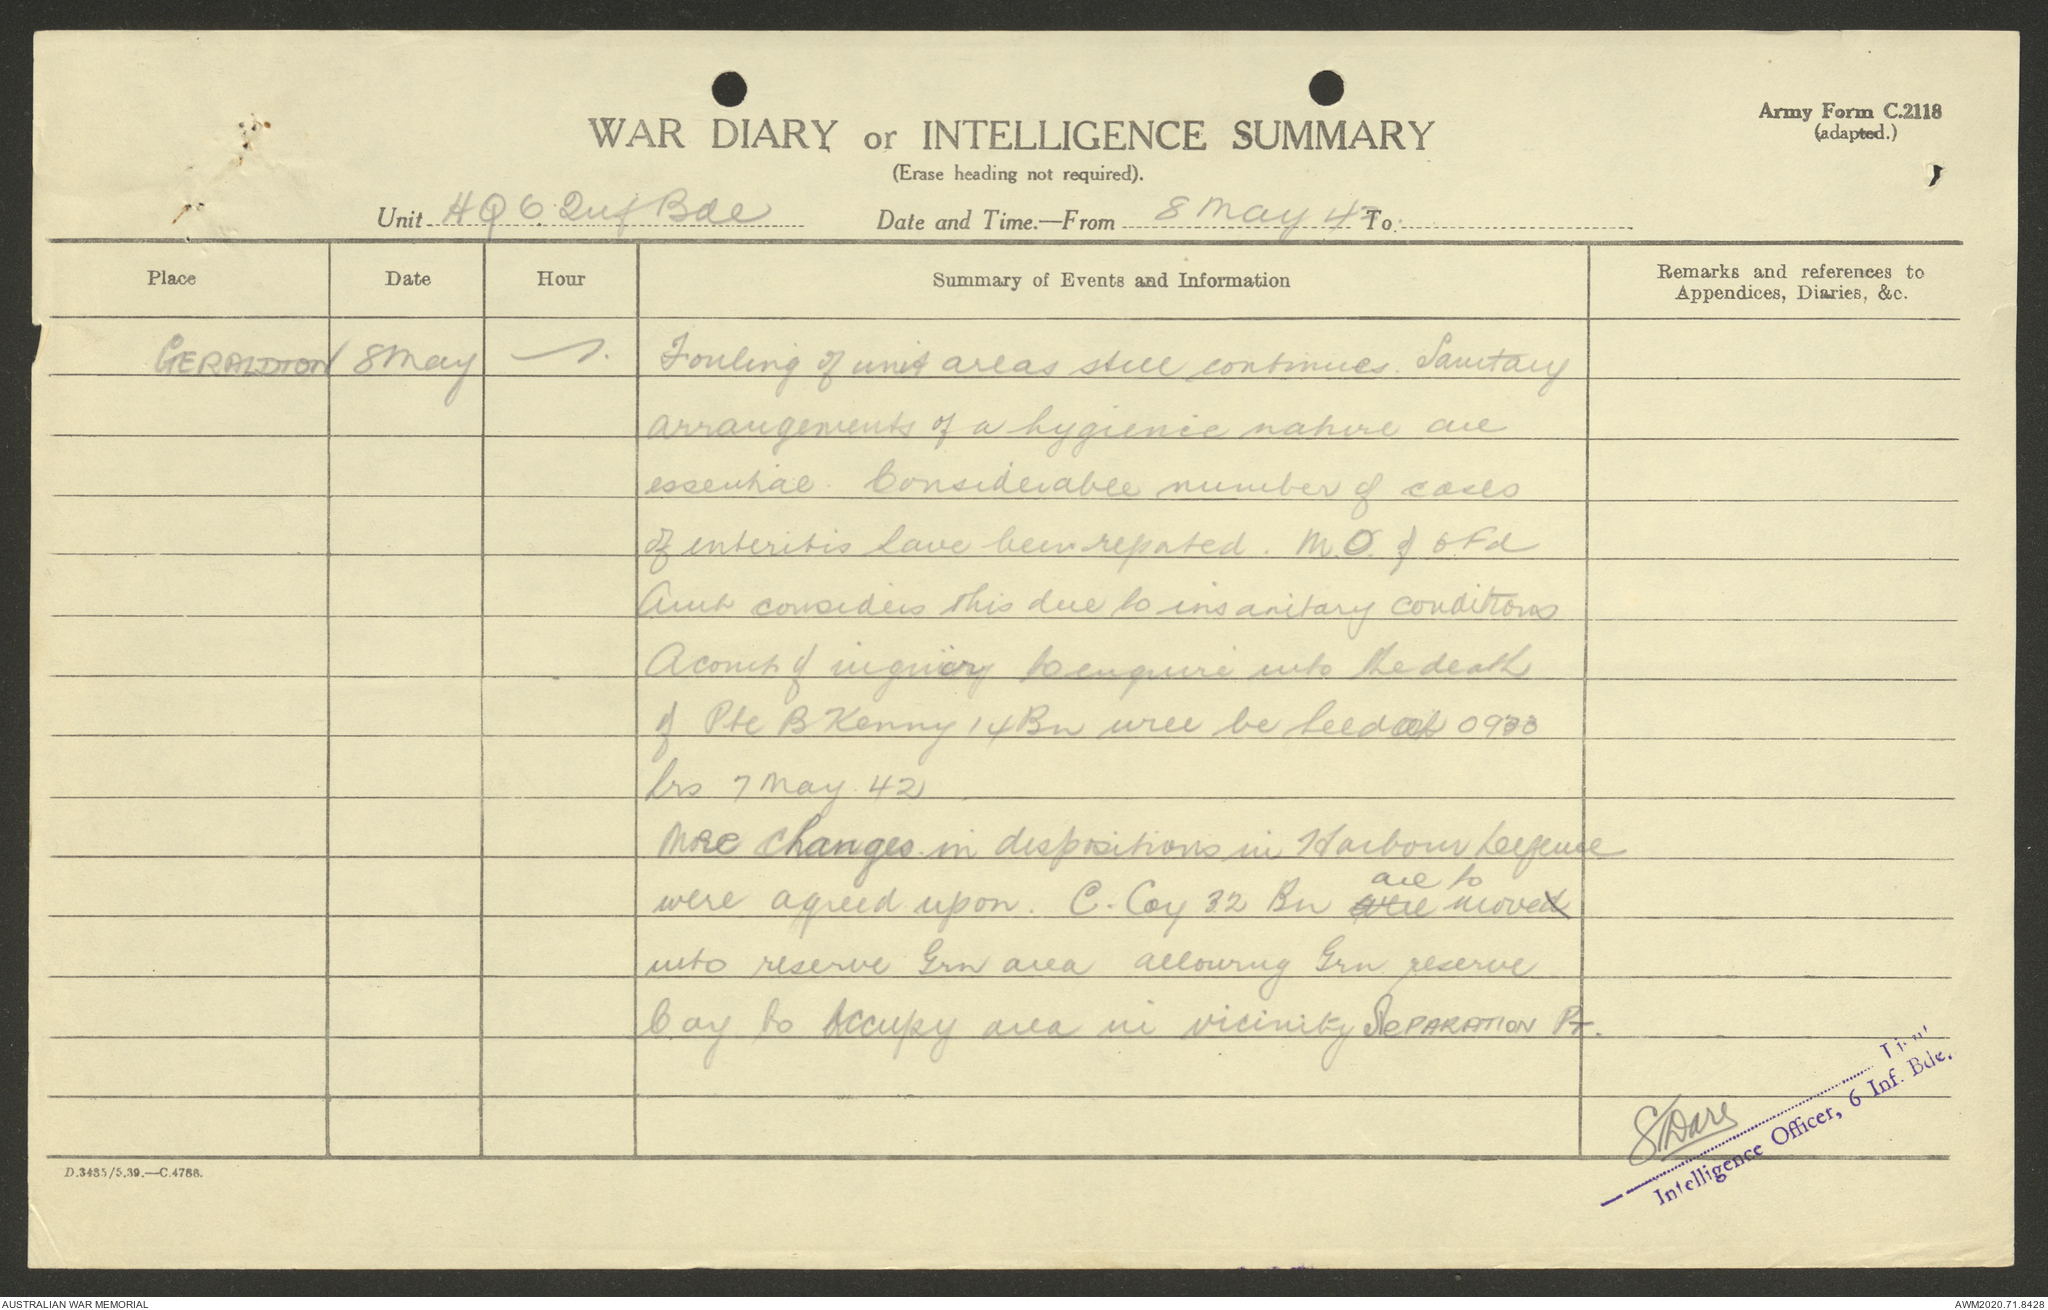 WAR DIARY or INTELLIGENCE SUMMARY
(Erase heading not required).
Army Form C.2118
(adapted.)
Unit HQ 6 Inf Bde Date and Time.—From 8 May 42 To
Place Date Hour Summary of Events and Information Remarks and references to
Appendices, Diaries, &c.
GERALDTON 8 May Fouling of unit areas still continues. Sanitary
arrangements of a hygienic nature are
essential. Considerable number of cases
of enteritis have been reported. M.O. of 6 Fd
Amb considers this due to insanitary conditions
A court of inquiry to enquire into the death
of Pte B Kenny 14 Bn will be held at
hrs 7 May 42
More changes in dispositions in Harbour Defence
were agreed upon. C. Coy 32 Bn are to move
into reserve Grn area allowing Grn reserve
Coy to occupy area in vicinity SEPARATION Pt.
Lieut
Intelligence Officer, 6 Inf. Bde.
D.3485/5.39.—C.4788.
AUSTRALIAN WAR MEMORIAL
AWM2020.71.8428